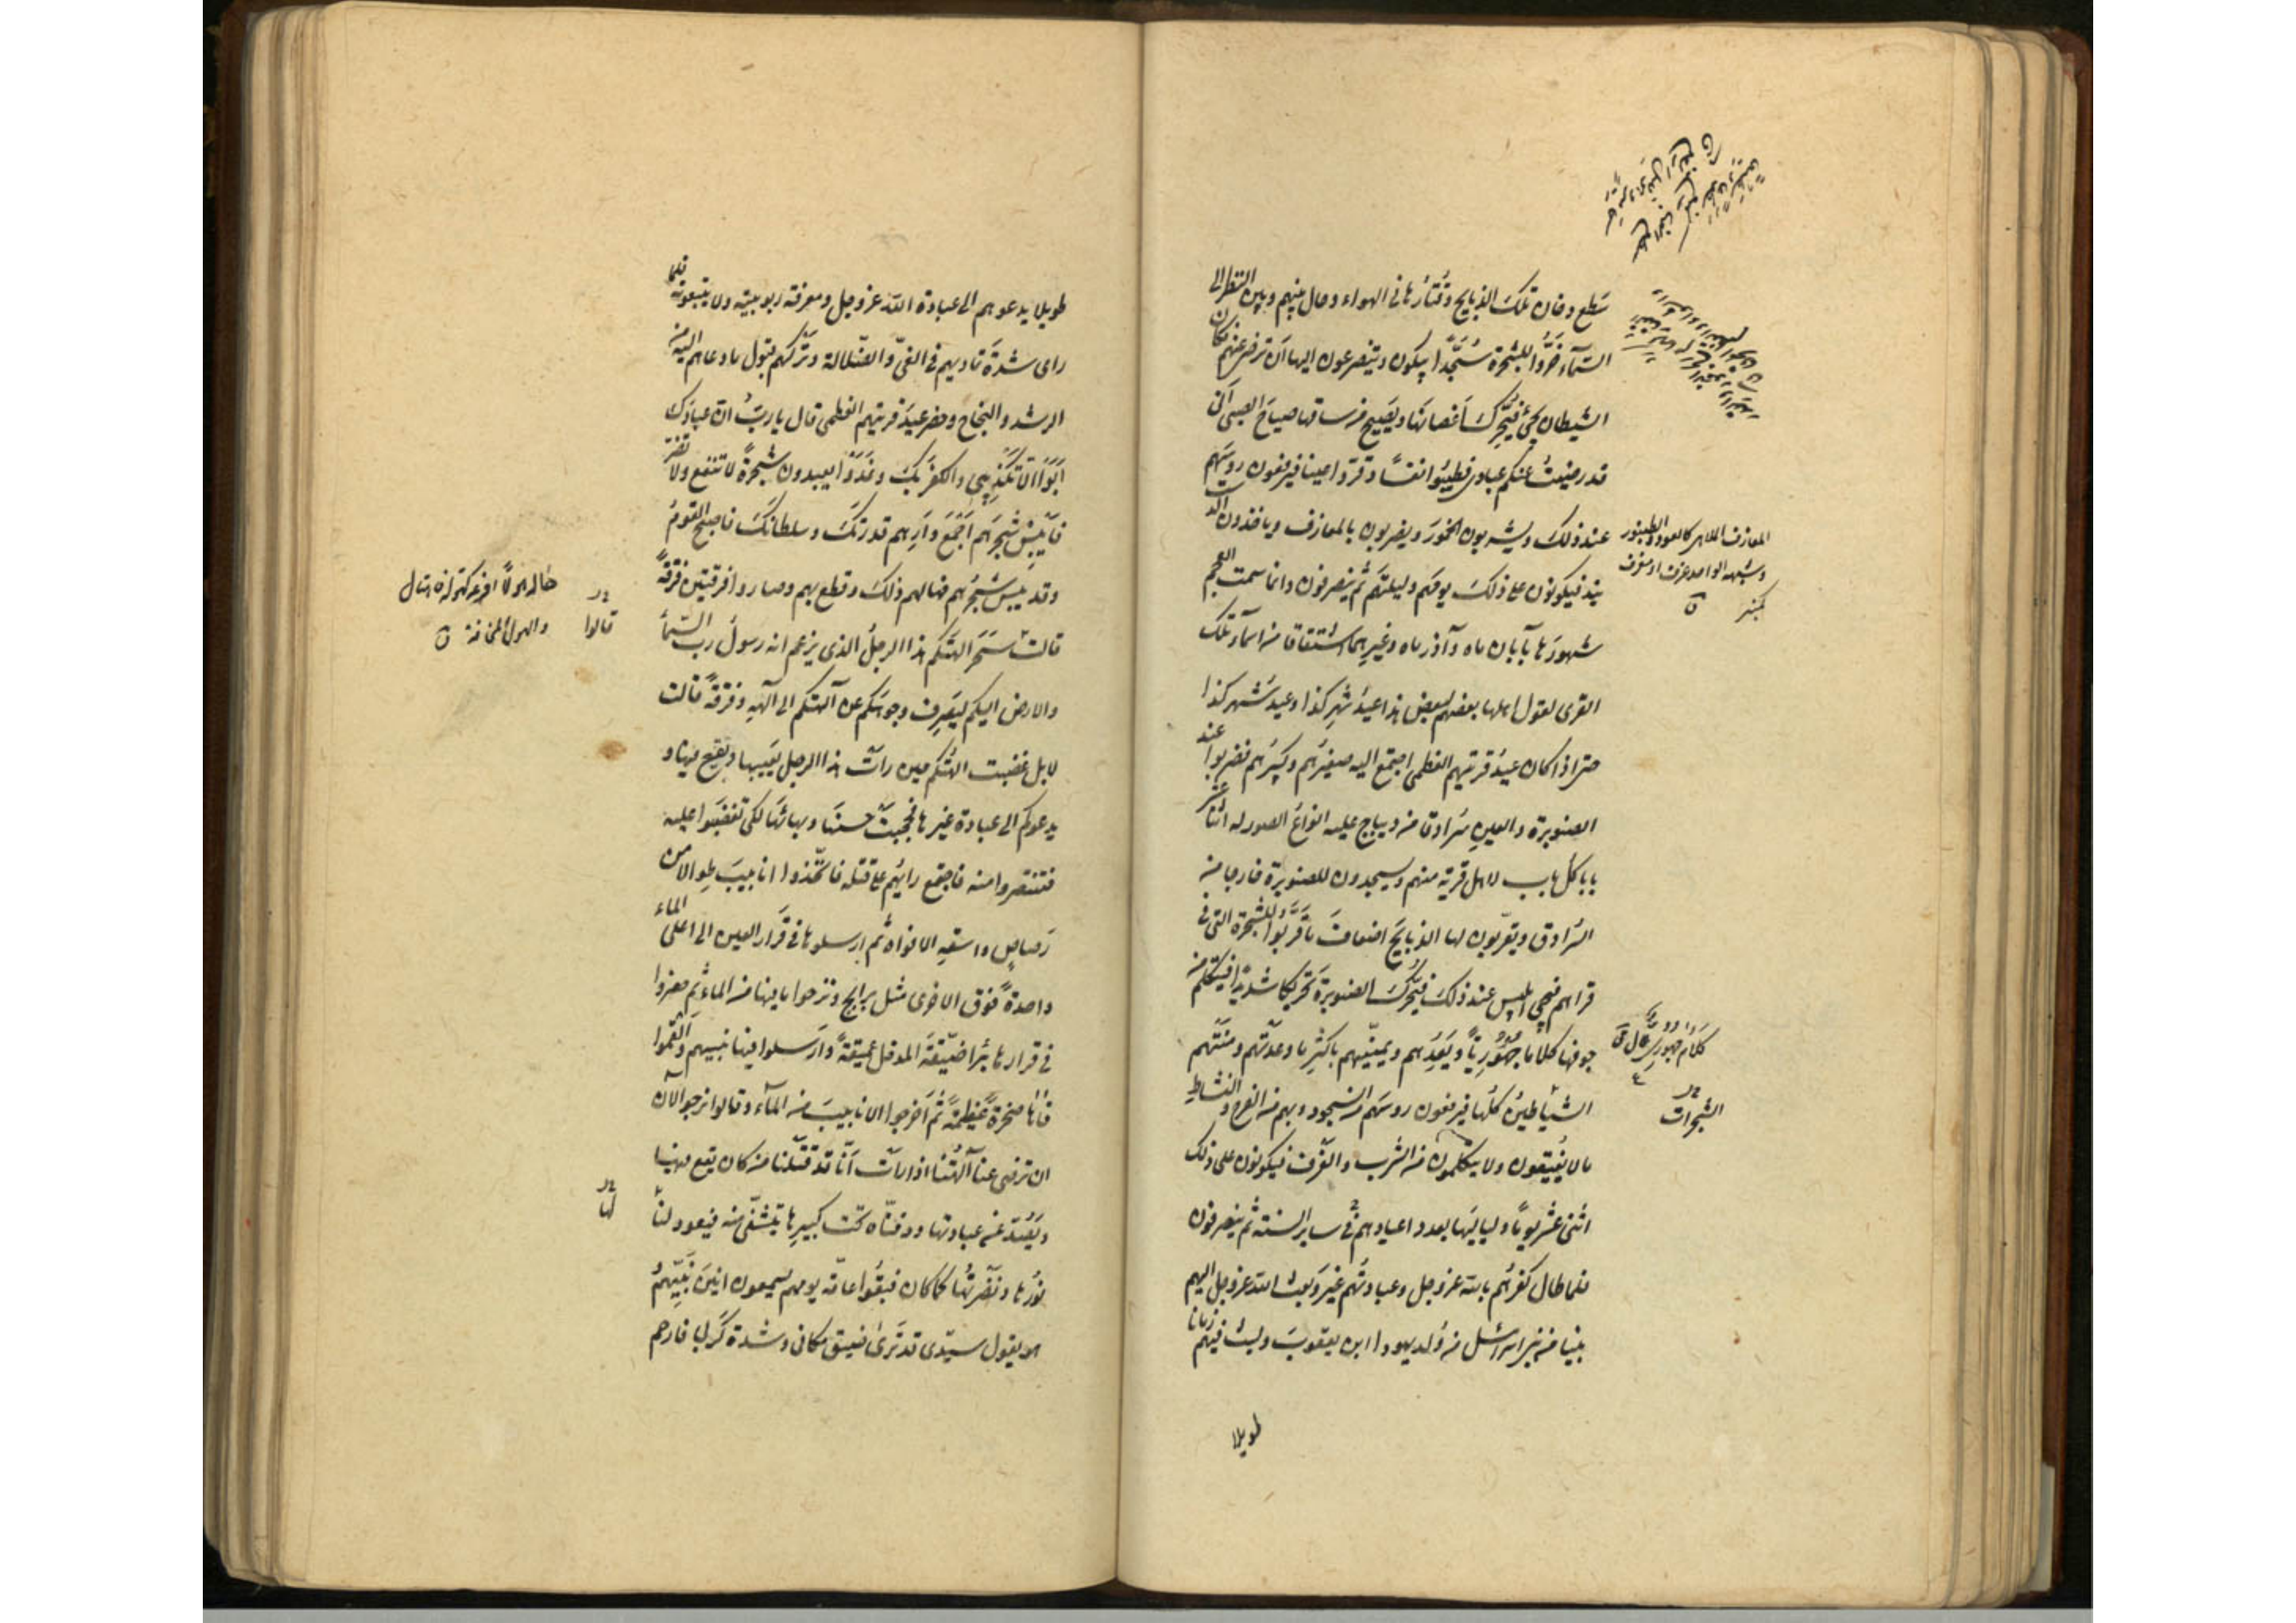 سَطع دخان تلك الذبايح وقُتارُها فى الهواء وحال بينهم وبين النظر الى
السّمآء خَرُّوا للشجرة سُجَّدًا يبكون ويتضرعون اليها اَن ترضى عنهم فكان
الشيطان يجئ فيُحرِّكُ اَغصانهَا ويَصيح من ساقها صياحَ الصبى اَنّى
قد رضيتُ عنكم عبادى فطيبُوا نفسًا وقرّوا عينا فيرفعون روسَهم
عند ذلك ويشربون الخمورَ ويضربون بالمعازف وياخذون الدست
بند فيكونون على ذلك يومَهم وليلتَهم ثم ينصرفون وانما سمت العجم
شهورَها بآبان ماه وآذر ماه وغيرِهما اشتقاقا من اسمآء تلك
القرى لقول اهلها بعضهم لبعض هذا عيدُ شهرِ كذا وعيد شهر كذا
حتى اذا كان عيدُ قريتهم العظمى اجتمع اليه صغيرُهم وكبيرُهم فضربوا عند
الصنوبرة والعينِ سُرادقا من ديباج عليه انواعُ الصور له اثنا عشر
بابا كلُّ باب لاهل قرية منهم ويسجدون للصنوبرة خارجا من
السُّرادق ويقرّبون لها الذبايحَ اضعافَ ما قَرَّبُوا للشجرة التى فى
قراهم فيجئ ابليس عند ذلك فيُحرِّكُ الصنوبرةَ تحريكا شديدًا فيتكلم من
جوفها كلاما جَهْوَرِيًّا ويَعِدُهم ويمنّيهم باكثرِ ما وعدَتهم ومنّتهم
الشياطينُ كلُّها فيرفعون روسَهم من السجود وبهم من الفرح والنشاط
ما لا يُفيقون ولا يتكلمون من الشرب والعَزْف فيكونون على ذلك
اثنى عشر يومًا ولياليَها بعدد اعيادهم فى ساير السنة ثم ينصرفون
فلما طال كفرُهم بالله عز وجل وعبادتُهم غيرَه بعث الله عز وجل اليهم
نبيا من بنى اسرائيل من وُلد يهودا ابن يعقوبَ ولبث فيهم زمانا
طويلا
المعازف الملاهى كالعود والطنبور
وشبهه الواحد عزف او معزف
كمنبر ق
كلام جهورى عال ق
الشجرات
طويلا يدعوهم الى عبادة الله عز وجل ومعرفة ربوبيته ولا يتبعونه فلما
راى شدةَ تماديهم فى الغىّ والضّلالة وتركَهم قبول ما دعاهم اليه من
الرشد والنجاح وحضر عيدَ قريتهم العظمى قال يا ربِّ ان عبادَك
اَبَوْا الّا تكذيبى والكفرَ بك وغدَوْا يعبدون شجرةً لا تنفع ولا تضر
فاَيبِسْ شجرَهم اَجمعَ واَرِهم قدرتَكَ وسلطانَكَ فاصبح القومُ
وقد يبس شجرُهم فهالهم ذلك وقطع بهم وصاروا فرقتين فرقةً
قالت سَحَرَ الهتَكم هذا الرجلُ الذى يزعم انه رسولُ رب السّمآء
والارض اليكم ليَصرِف وجوهَكم عن آلهتكم الى آلهه وفرقةً قالت
لا بل غضبت الهتُكم حين راَت هذا الرجل يَعيبها ويقع فيها و
يدعوكم الى عبادة غيرها فحجبت حسنَها وبهائَها لكى تغضبَوا عليه
فتنتصروا منه فاجتمع رايُهم على قتله فاتّخذوا انابيبَ طوالا من
رَصاصٍ واسعةِ الافواه ثم ارسلوها فى قَرار العين الى اعلى الماء
واحدةً فوق الاخرى مثل برابخ ونزحوا ما فيها من الماء ثم حفروا
فى قرارها بئرا ضيّقةَ المدخل عميقةً واَرسلوا فيها نبيهم واَلقموا
فاها صخرةً عظيمةً ثم اَخرجوا الانابيبَ من المآء وقالوا نرجو الآن
ان ترضى عنا آلهتُنا اذا راَت اَنّا قد قتلنا من كان يقع فيها
ويَصُدّ عن عبادتها ودفنّاه تحت كبيرِها يتشفّى منه فيعود لنا
نورُها ونَضْرتُها كما كان فبقُوا عامّة يومهم يسمعون انينَ نبيّهم
وهو يقول سيّدى قد ترَى ضيق مكانى وشدة كَربى فارحم
هاله هولًا افزعه
قالوا
لها